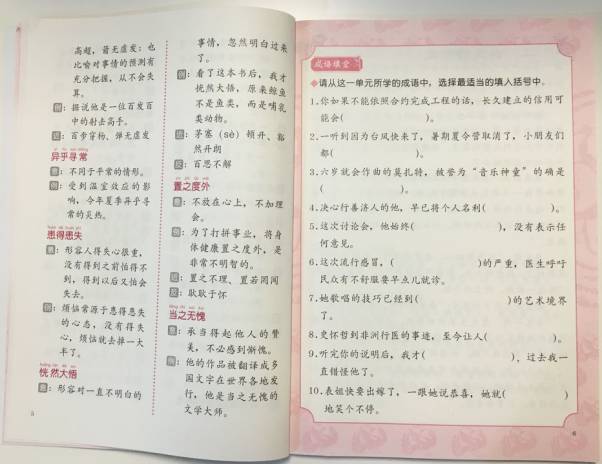 高超，箭无虚发；也
比喻对事情的预测有
充分把握，从不会失
算。
例：据说他是一位百发百
中的射击高手。
近：百步穿杨、弹无虚发
异乎寻常
意：不同于平常的情形。
例：受到温室效应的影
响，今年夏季异乎寻
常的炎热。
患得患失
意：形容人得失心很重，
没有得到之前怕得不
到，得到以后又怕会
失去。
例：烦恼常源于患得患失
的心态，没有得失
心，烦恼就去掉一大
半了。
恍然大悟
意：形容对一直不明白的
5
事情，忽然明白过来
了。
例：看了这本书后，我才
恍然大悟，原来鲸鱼
不是鱼类，而是哺乳
类动物。
近：茅塞（sè）顿开、豁
然开朗
反：百思不解
置之度外
意：不放在心上，不加理
会。
例：为了打拼事业，将身
体健康置之度外，是
非常不明智的。
近：置之不理、置若罔闻
反：耿耿于怀
当之无愧
意：承当得起他人的赞
美，不必感到惭愧。
例：他的作品被翻译成多
国文字在世界各地发
行，他是当之无愧的
文学大师。
成语课堂
◆请从这一单元所学的成语中，选择最适当的填入括号中。
1.你如果不能依照合约完成工程的话，长久建立的信用可
能会(　　　　)。
2.一听到因为台风快来了，暑期夏令营取消了，小朋友们
都(　　　　)。
3.六岁就会作曲的莫扎特，被誉为“音乐神童”的确是
(　　　　)。
4.决心行善济人的他，早已将个人名利(　　　　)。
5.这次讨论会，他始终(　　　　)，没有表示任
何意见。
6.这次流行感冒，(　　　　)的严重，医生呼吁
民众有不舒服要早点儿就诊。
7.她歌唱的技巧已经到(　　　　)的艺术境界
了。
8.史怀哲到非洲行医的事迹，至今让人(　　　　)。
9.听完你的说明后，我才(　　　　)，过去我一
直错怪他了。
10.表姐快要出嫁了，一跟她说恭喜，她就(　　　　)
地笑个不停。
6